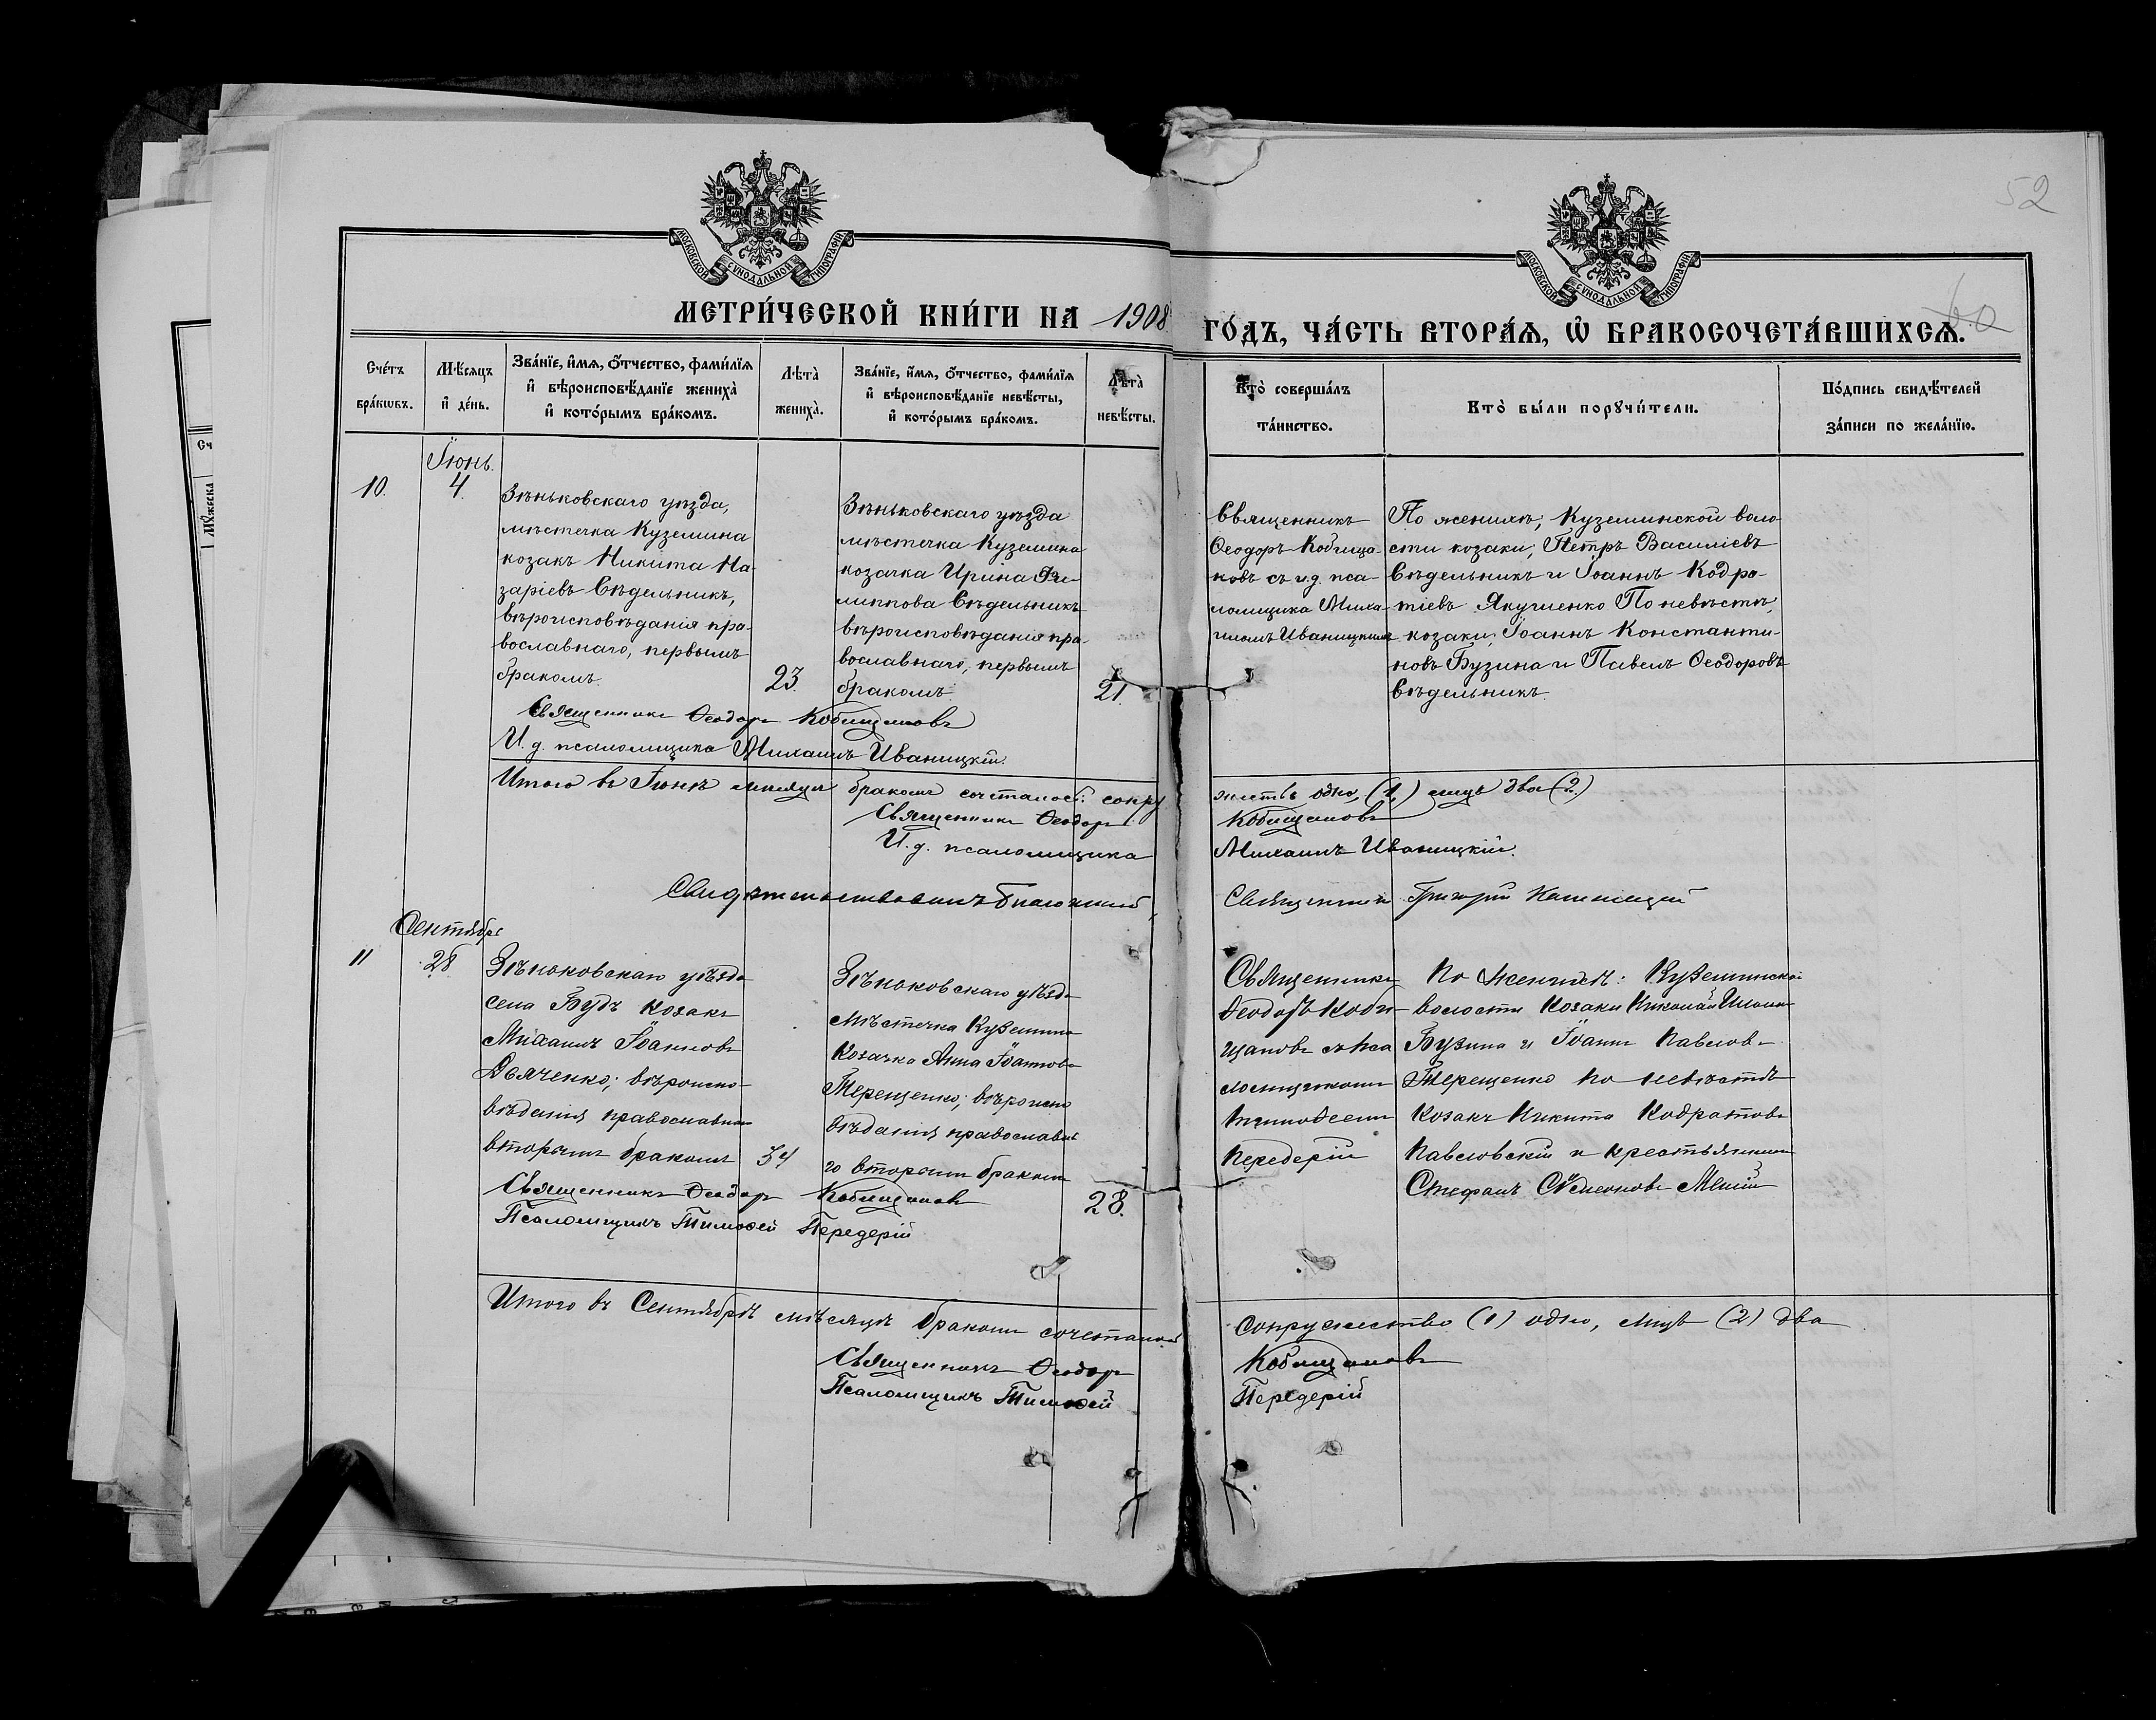 52
60
МОСКОВСКОЙ СѴНОДАЛЬНОЙ ТИПОГРАФІИ
МОСКОВСКОЙ СѴНОДАЛЬНОЙ ТИПОГРАФІИ
МЕТРИ́ЧЕСКОЙ КНИ́ГИ НА 1908 ГО́ДЪ, ЧА́СТЬ ВТОРА́Ѧ, Ѡ҆ БРАКОСОЧЕТА́ВШИХСѦ.
Сче́тъ
бра́кѡвъ.
Мѣ́сѧцъ
и҆ де́нь.
Зва́нїе, и҆́мѧ, ѻ҆́тчество, фами́лїѧ
и҆ вѣроисповѣ́данїе жениха̀
и҆ кото́рымъ бра́комъ.
Лѣта̀
жениха̀.
Зва́нїе, и҆́мѧ, ѻ҆́тчество, фами́лїѧ
и҆ вѣроисповѣ́данїе невѣ́сты,
и҆ кото́рымъ бра́комъ.
Лѣта̀
невѣ́сты.
Кто̀ соверша́лъ
та́инство.
Кто̀ бы́ли порꙋчи́тели.
По́дпись свидѣ́телей
за́писи по жела́нїю.
10.
Іюнь.
4.
Зѣньковскаго уѣзда,
мѣстечка Куземина
козакъ Никита На-
заріевъ Сѣдельникъ,
вѣроисповѣданія пра-
вославнаго, первымъ
бракомъ.
23.
Зѣньковскаго уѣзда
мѣстечка Куземина
козачка Ирина Фи-
липпова Сѣдельникъ
вѣроисповѣданія пра-
вославнаго, первымъ
бракомъ
21.
Священникъ
Ѳеодоръ Кобища-
новъ съ и.д. пса-
ломщика Миха-
иломъ Иваницкимъ
По женихѣ; Куземинской воло-
сти козаки; Петръ Василіевъ
Сѣдельникъ и Іоаннъ Кодра-
тіевъ Якушенко По невѣстѣ,
козаки; Іоаннъ Константи-
новъ Бузина и Павелъ Ѳеодоровъ
Сѣдельникъ
Священникъ Ѳеодоръ Кобищановъ
И. д. псаломщика Михаилъ Иваницкій.
Итого въ Іюнѣ мѣсяцѣ бракомъ сочеталось: супру
жествъ одно, (1,) лицъ два (2.)
Священникъ Ѳеодоръ Кобищановъ
И. д. псаломщика Михаилъ Иваницкій.
Свидѣтельствовалъ Благочинный, Священникъ Григорій
Сентябрь
11
28
Зѣньковскаго уѣзда
села Будъ козакъ
Михаилъ Іоанновъ
Дьяченко; вѣроиспо-
вѣданія православнаго
вторымъ бракомъ
34
Зѣньковскаго уѣзда
мѣстечка Куземина
Козачка Анна Іоаннова
Терещенко; вѣроиспо
вѣданія православна
го вторымъ бракомъ
28.
Священникъ
Ѳеодоръ Коби-
щановъ съ Пса
ломщикомъ
Тимоѳеемъ
Передерій
По женихѣ: Куземинской
волости Козаки Николай
Бузина и Іоаннъ Павловъ
Терещенко По невѣстѣ
Козакъ Никита Кодратовъ
Павловскій и крестьянинъ
Стефанъ Сѵмеоновъ
Священникъ Ѳеодоръ Кобищановъ
Псаломщикъ Тимоѳей Передерій
Итого въ Сентябрѣ мѣсяцѣ бракомъ сочеталось
Супружество (1) одно, лицъ (2) два
Священникъ Ѳеодоръ Кобищановъ
Псаломщикъ Тимоѳей Передерій
Сч
Мꙋжеска